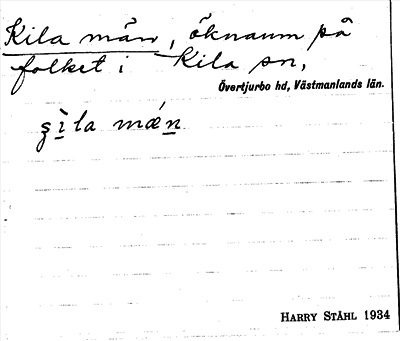 Kila män, öknamn på
folket i Kila sn,
Övertjurbo hd, Västmanlands län.
ʂìla mǽn
HARRY STÅHL 1934